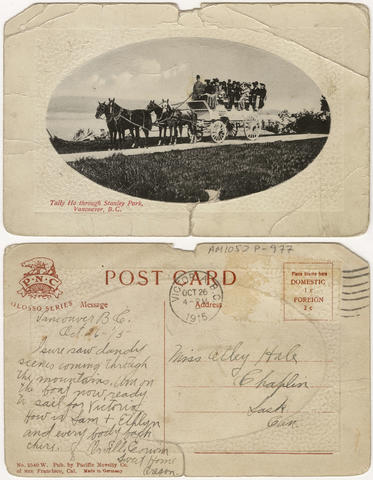 Tally Ho through Stanley Park,
Vancouver, B.C.
AM1052 P-977
P·N·C
GLOSSO SERIES
POST CARD
Message
Address
VICTORIA B.C.
OCT 26
4-PM
1915
Place Stamp here
DOMESTIC
1 c
FOREIGN
2 c
Vancouver B.C.
Oct 26-'15-
I sure saw dandy
scenes coming through
the mountains. Am on
the boat now ready
to sail for Victoria
How is Sam &
and every body back
there.
Sweet Home
Oregon
Miss Hale
Chaplin
Sask
Can.
No. 2540 W. Pub. by Pacific Novelty Co.
of San Francisco, Cal. Made in Germany